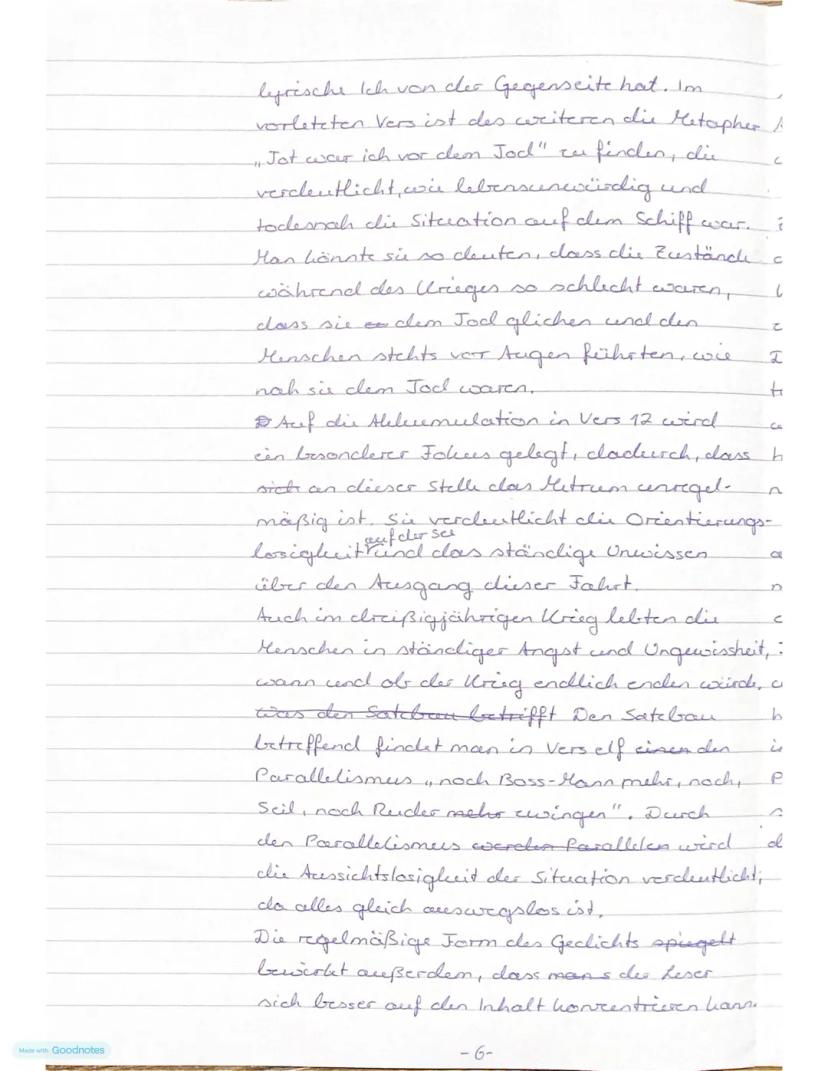 lyrische Ich von der Gegenseite hat. Im
vorletzten Vers ist des weiteren die Metapher
„Tot war ich vor dem Tod" zu finden, die
verdeutlicht, wie lebensunwürdig und
todesnah die Situation auf dem Schiff war.
Man könnte sie so deuten, dass die Zustände
während des Krieges so schlecht waren,
dass sie dem Tod glichen und den
Menschen stehts vor Augen führten, wie
nah sie dem Tod waren.
Auf die Akkumulation in Vers 12 wird
ein besonderer Fokus gelegt, dadurch, dass
sich an dieser Stelle das Metrum unregel-
mäßig ist. Sie verdeutlicht die Orientierungs-
auf der See
losigkeit und das ständige Unwissen
über den Ausgang dieser Fahrt.
Auch im dreißigjährigen Krieg lebten die
Menschen in ständiger Angst und Ungewissheit,
wann und ob der Krieg endlich enden würde,
was den Satzbau betrifft Den Satzbau
betreffend findet man in Vers elf einen den
Parallelismus „noch Boss-Mann mehr, noch,
Seil, noch Ruder mehr zwingen". Durch
den Parallelismus werden Parallelen wird
die Aussichtslosigkeit der Situation verdeutlicht,
da alles gleich auswegslos ist.
Die regelmäßige Form des Gedichts spiegelt
bewirkt außerdem, dass mans der Leser
sich besser auf den Inhalt konzentrieren kann.
-6-
Made with Goodnotes